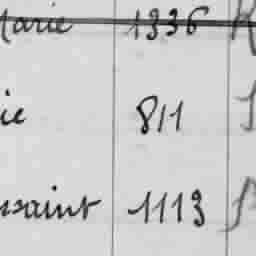 Marie 1336
ie 811
ssaint 1113